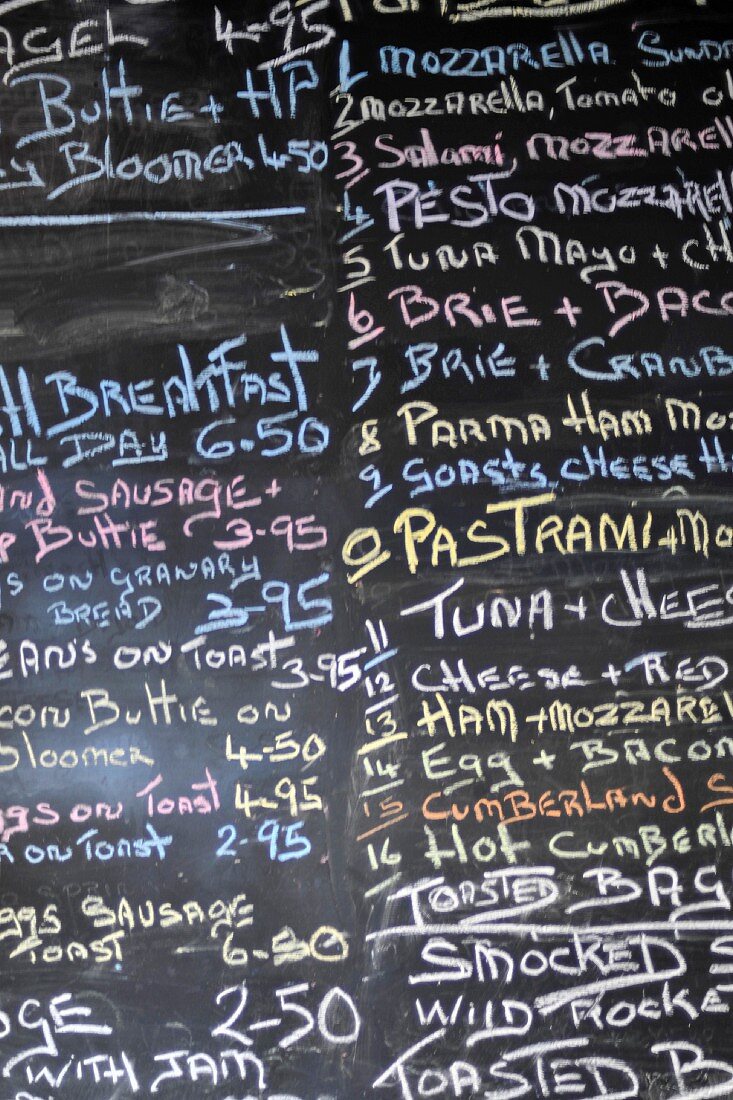 AGEL 4-95
Buttie + HP
y Bloomer 4-50
BREAKFAST
ALL DAY 6.50
AND SAUSAGE +
P BUTTIE 3-95
S ON GRANARY
BREAD 3-95
EANS ON TOAST 3-95
CON BUTTIE ON
Bloomer 4-50
GGS ON TOAST 4-95
ON TOAST 2-95
GGS SAUSAGE
TOAST 6-50
DGE 2-50
WITH JAM
1 MOZZARELLA SUNDR
2 MOZZARELLA, TOMATO OL
3 Salami, MOZZARELL
4 PESTO MOZZARELL
5 TUNA MAYO + CH
6 BRIE + BACO
7 BRIE + CRANB
8 PARMA HAM MOZ
9 GOASTS CHEESE H
0 PASTRAMI + MO
11 TUNA + CHEES
12 CHEESE + RED
13 HAM + MOZZAREL
14 EGG + BACON
15 CUMBERLAND S
16 HOT CUMBERLA
TOASTED BAG
SMOCKED S
WILD ROCKE
TOASTED B